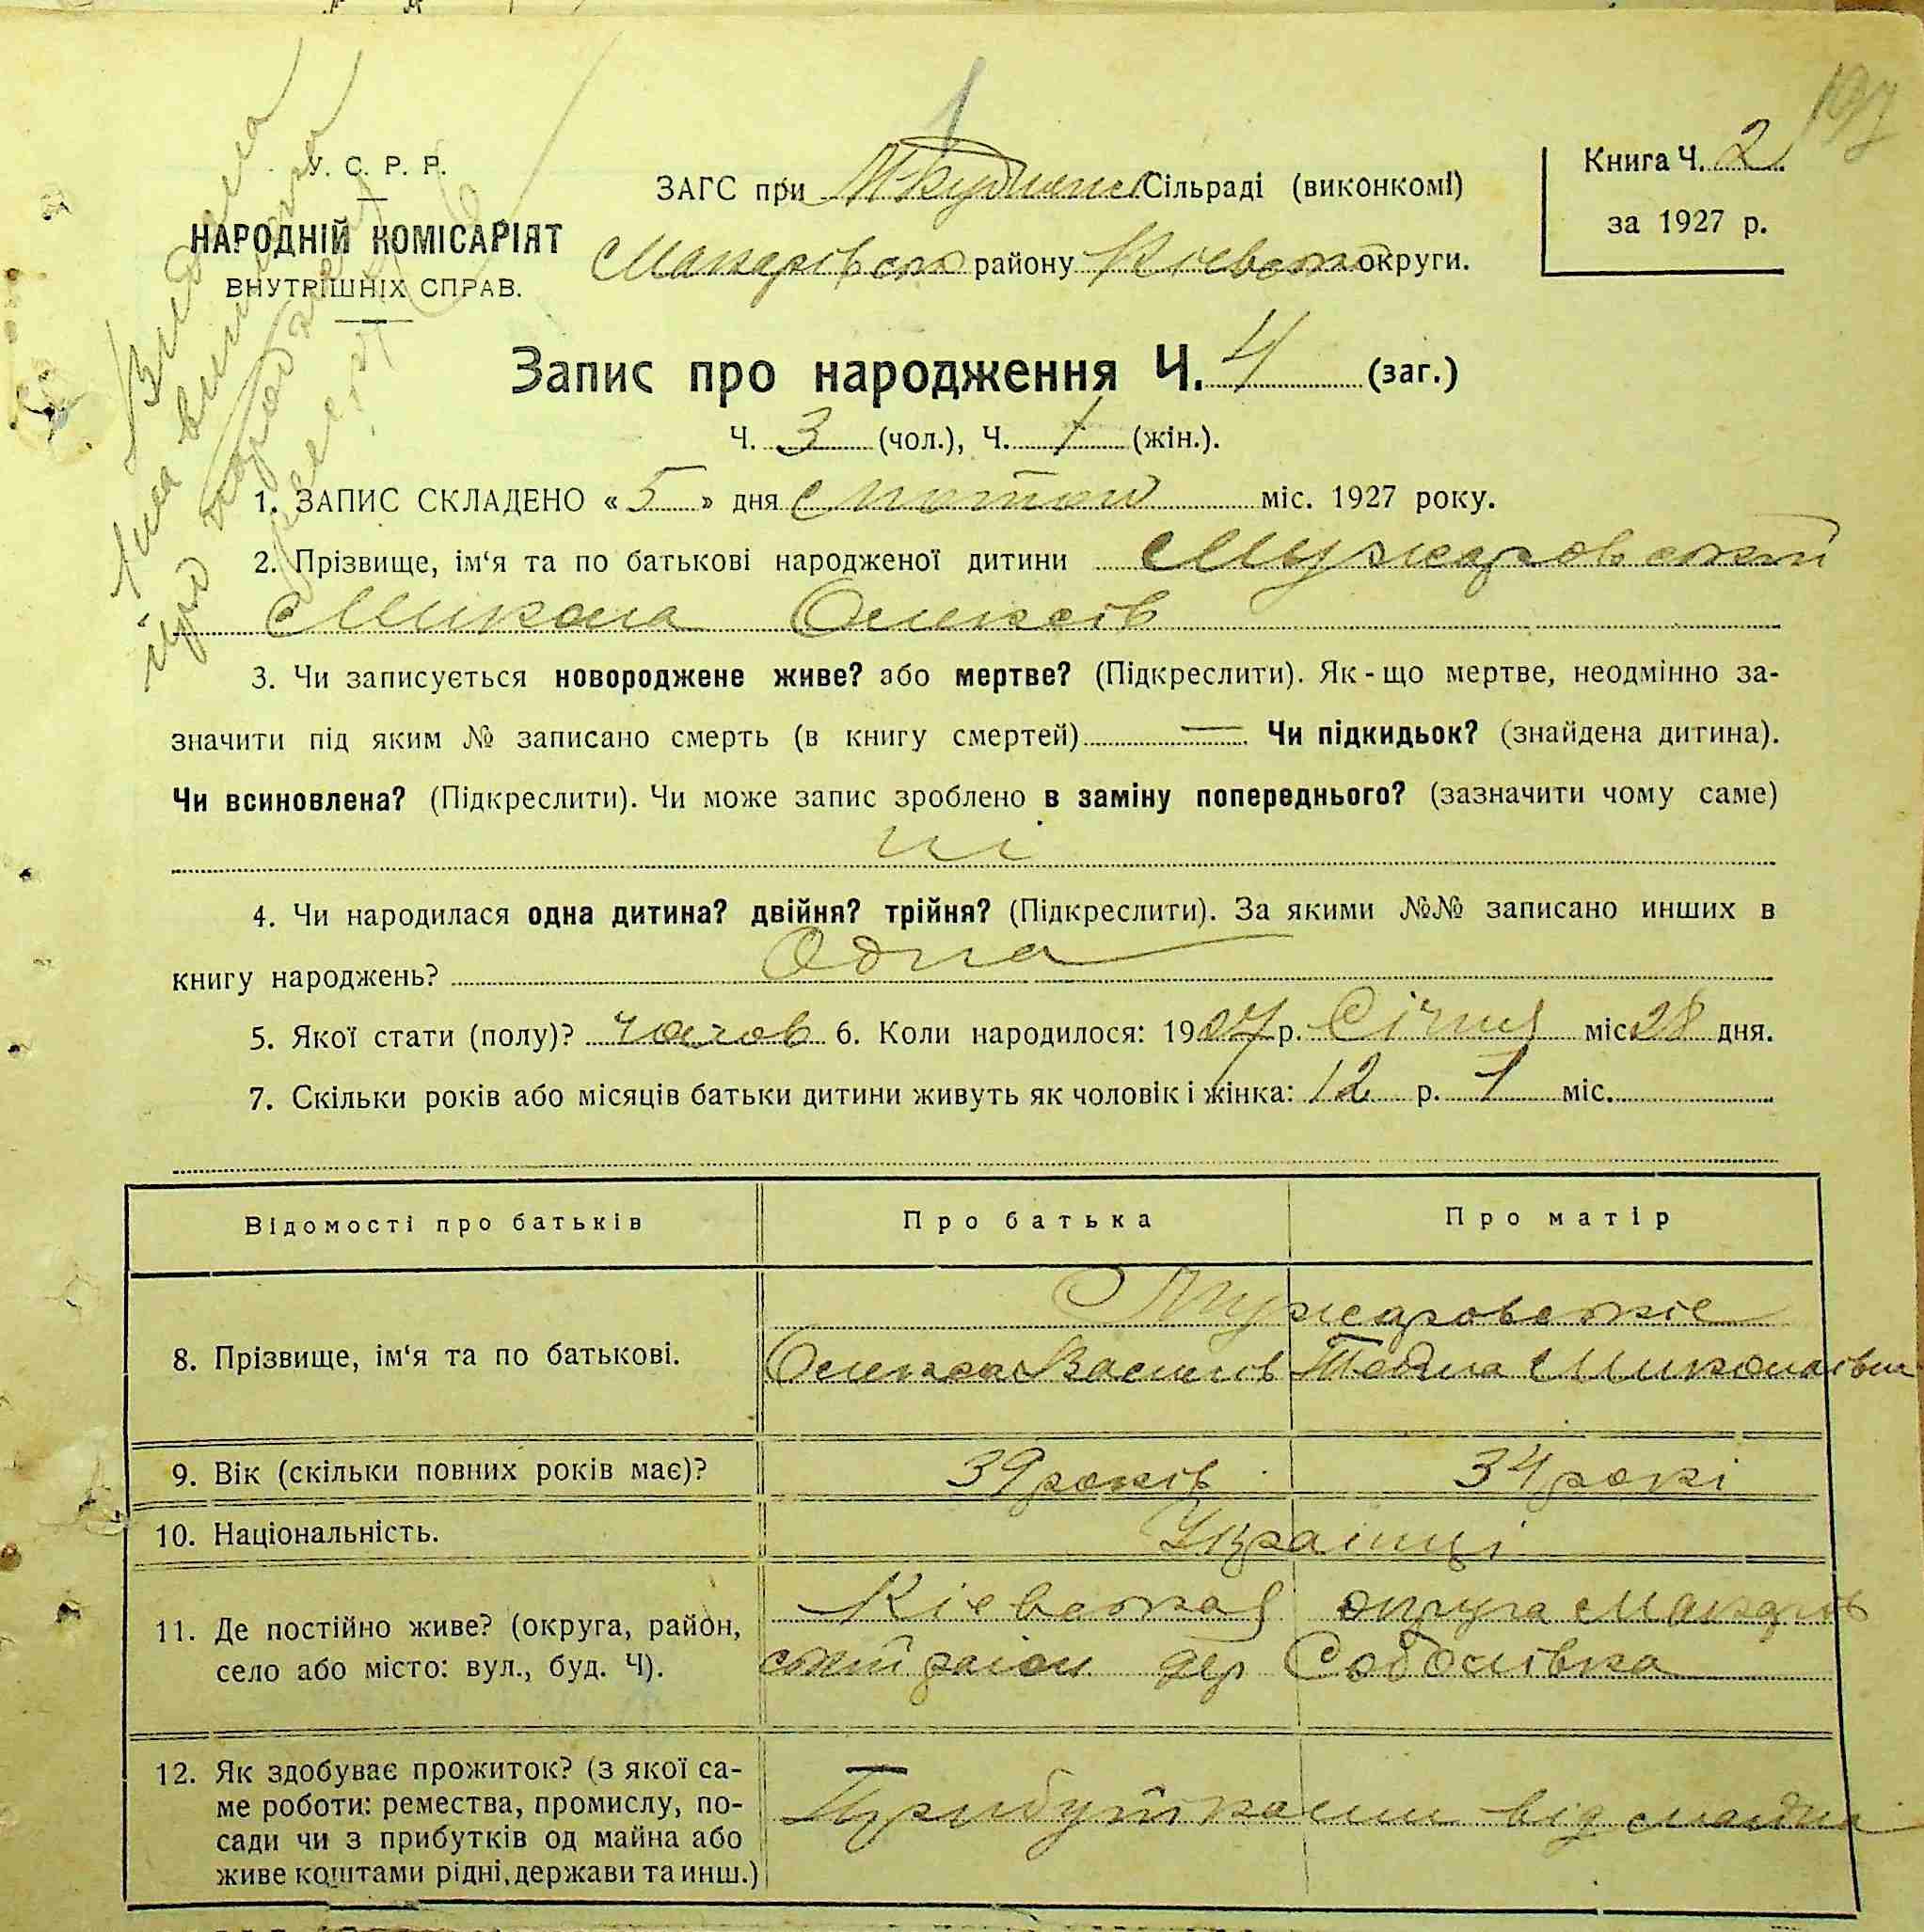 197
У. С. Р. Р.
НАРОДНІЙ КОМІСАРІЯТ
ВНУТРІШНІХ СПРАВ.
ЗАГС при Сільраді (виконкомі)
Макарівськ району Кіевськ округи.
Книга Ч. 2
за 1927 р.
Запис про народження Ч. 4 (заг.)
Ч. 3 (чол.), Ч. 1 (жін.).
1. ЗАПИС СКЛАДЕНО «5» дня лютого міс. 1927 року.
2. Прізвище, ім‘я та по батькові народженої дитини Мужаровський
Микола Олексів
3. Чи записується новороджене живе? або мертве? (Підкреслити). Як-що мертве, неодмінно за-
значити під яким № записано смерть (в книгу смертей) — Чи підкидьок? (знайдена дитина).
Чи всиновлена? (Підкреслити). Чи може запис зроблено в заміну попереднього? (зазначити чому саме)
ні
4. Чи народилася одна дитина? двійня? трійня? (Підкреслити). За якими №№ записано инших в
книгу народжень? Одна
5. Якої стати (полу)? чолов 6. Коли народилося: 1927 р. Січня міс 28 дня.
7. Скільки років або місяців батьки дитини живуть як чоловік і жінка: 12 р. 1 міс.
Відомості про батьків Про батька Про матір
Мужаровські
8. Прізвище, ім‘я та по батькові. Олекса Василів Миколаівна
9. Вік (скільки повних років має)? 39 років 34 рокі
10. Національність. Украінці
11. Де постійно живе? (округа, район, село або місто: вул., буд. Ч). Кіевская округа Макарів
ский раіон дер Соболівка
12. Як здобуває прожиток? (з якої са-
ме роботи: ремества, промислу, по-
сади чи з прибутків од майна або
живе коштами рідні, держави та инш.)
Прибутками від майна